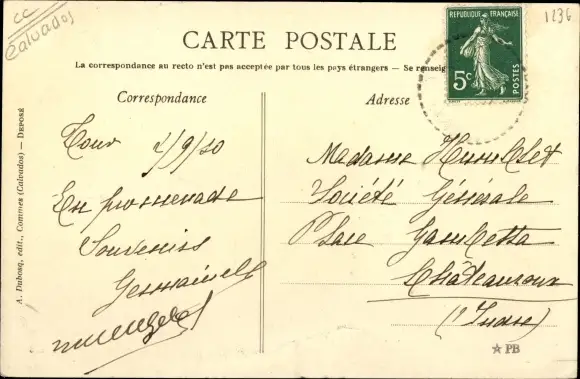 CC
Calvados
1236
CARTE POSTALE
La correspondance au recto n'est pas acceptée par tous les pays étrangers — Se renseig
REPUBLIQUE FRANÇAISE
5c
POSTES
Correspondance
Adresse
A. Dubosq, edit., Commes (Calvados) — DEPOSÉ
Tour /9/10
En promenade
Souvenirs
Germaine
Madame
Société Générale
Place Gambetta
Châteauroux
(Indre)
PB